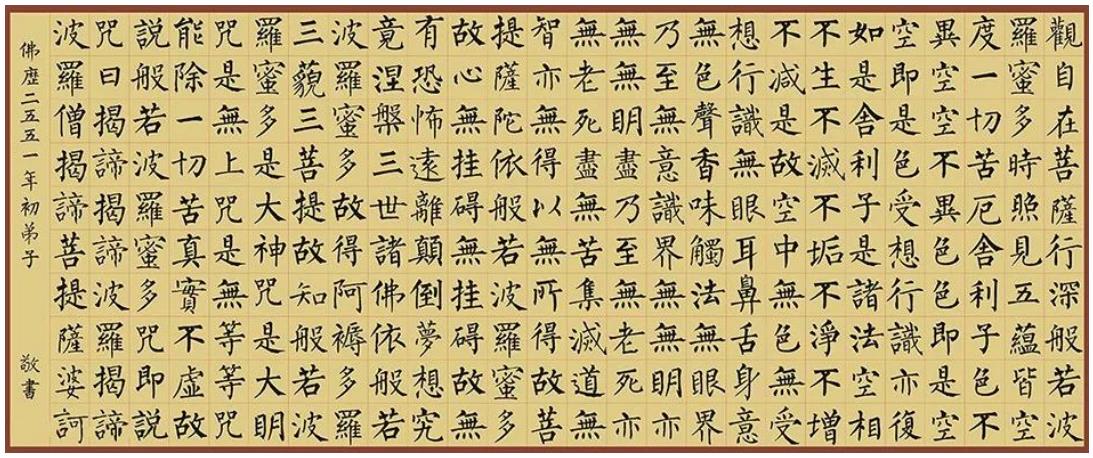 觀自在菩薩行深般若波
羅蜜多時照見五蘊皆空
度一切苦厄舍利子色不
異空空不異色色即是空
空即是色受想行識亦復
如是舍利子是諸法空相
不生不滅不垢不淨不增
不減是故空中無色無受
想行識無眼耳鼻舌身意
無色聲香味觸法無眼界
乃至無意識界無無明亦
無無明盡乃至無老死亦
無老死盡無苦集滅道無
智亦無得以無所得故菩
提薩陀依般若波羅蜜多
故心無挂碍無挂碍故無
有恐怖遠離顛倒夢想究
竟涅槃三世諸佛依般若
波羅蜜多故得阿褥多羅
三藐三菩提故知般若波
羅蜜多是大神咒是大明
咒是無上咒是無等等咒
能除一切苦真實不虛故
說般若波羅蜜多咒即說
咒曰揭諦揭諦波羅揭諦
波羅僧揭諦菩提薩婆訶
佛曆二五五一年初弟子 敬書